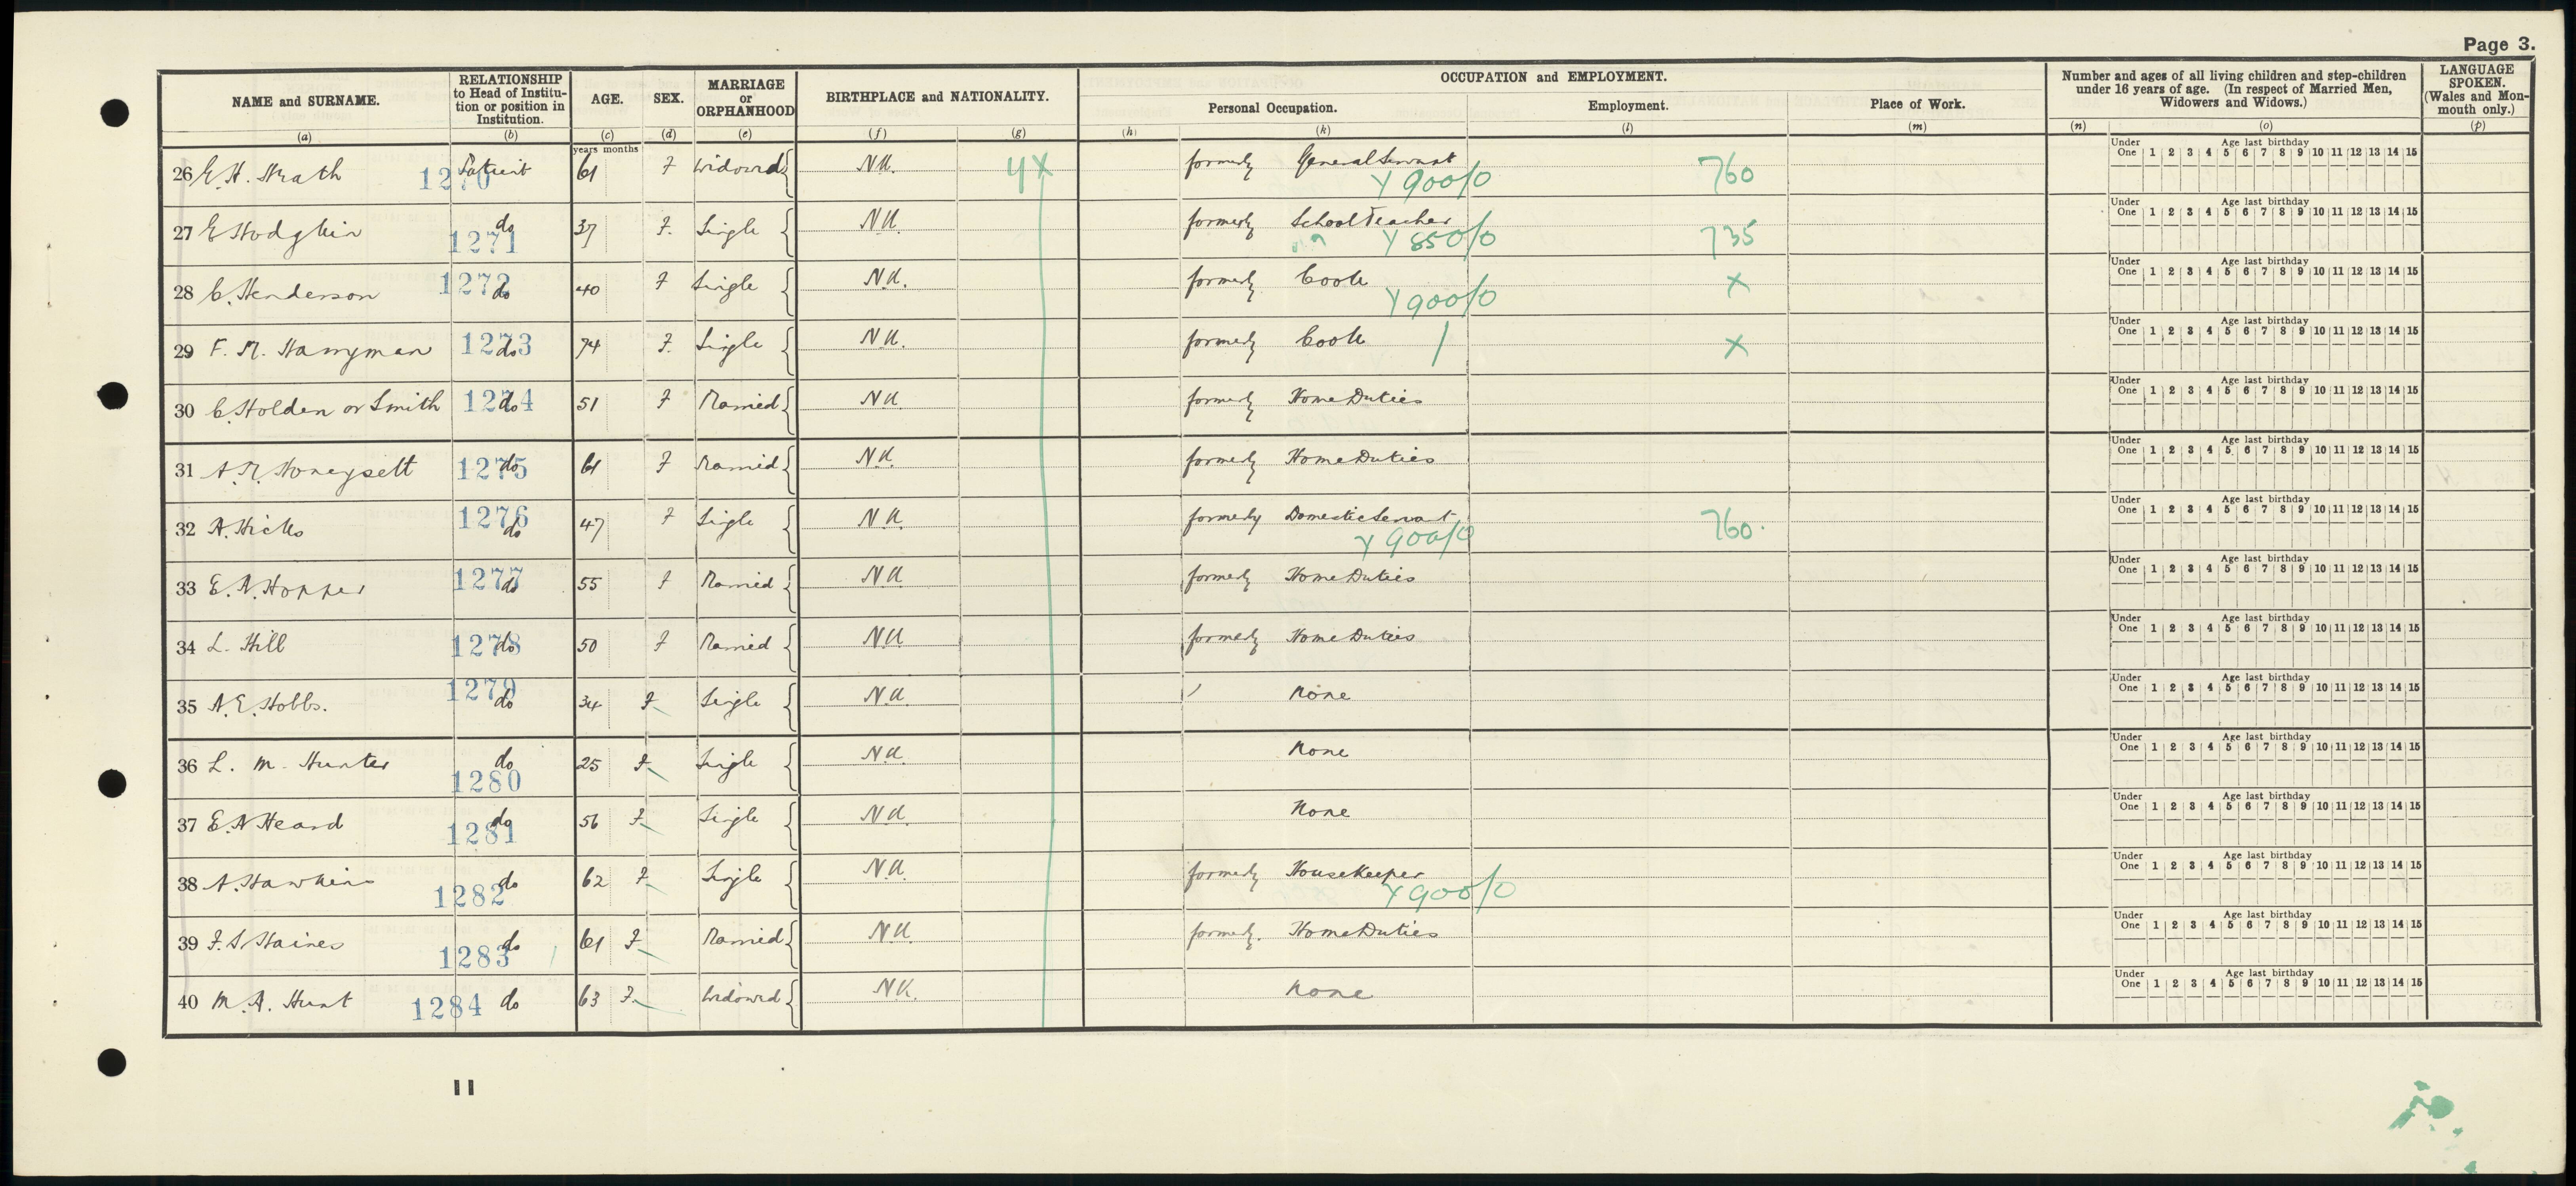 Page 3.
NAME and SURNAME. RELATIONSHIP to Head of Institution or position in Institution. AGE. SEX. MARRIAGE or ORPHANHOOD BIRTHPLACE and NATIONALITY. OCCUPATION and EMPLOYMENT. Number and ages of all living children and step-children under 16 years of age. (In respect of Married Men, Widowers and Widows.) LANGUAGE SPOKEN. (Wales and Monmouth only.)
Personal Occupation. Employment. Place of Work.
(a) (b) (c) (d) (e) (f) (g) (h) (k) (l) (m) (n) (o) (p)
years months
Under One 1 2 3 4 5 6 7 8 9 10 11 12 13 14 15 Age last birthday
26 E. H. Heath 1270 Patient 61 F Widowed N.K. 4X formerly General Servant Y 900/0 760
Under One 1 2 3 4 5 6 7 8 9 10 11 12 13 14 15 Age last birthday
27 E Hodgkin do 1271 37 F. Single N.K. formerly School Teacher Y 850/0 735
Under One 1 2 3 4 5 6 7 8 9 10 11 12 13 14 15 Age last birthday
28 C. Henderson 1272 do 40 F Single N.K. formerly Cook Y 900/0 X
Under One 1 2 3 4 5 6 7 8 9 10 11 12 13 14 15 Age last birthday
29 F. M. Harryman 1273 do 74 F. Single N.K. formerly Cook / X
Under One 1 2 3 4 5 6 7 8 9 10 11 12 13 14 15 Age last birthday
30 C. Holden or Smith 1274 do 51 F Married N.K. formerly Home Duties
Under One 1 2 3 4 5 6 7 8 9 10 11 12 13 14 15 Age last birthday
31 A. M. Honeysett 1275 do 61 F Married N.K. formerly Home Duties
Under One 1 2 3 4 5 6 7 8 9 10 11 12 13 14 15 Age last birthday
32 A. Hicks 1276 do 47 F Single N.K. formerly Domestic Servant Y 900/0 760.
Under One 1 2 3 4 5 6 7 8 9 10 11 12 13 14 15 Age last birthday
33 E. A. Hopper 1277 do 55 F Married N.K formerly Home Duties
Under One 1 2 3 4 5 6 7 8 9 10 11 12 13 14 15 Age last birthday
34 L. Hill 1278 do 50 F Married N.K formerly Home Duties
Under One 1 2 3 4 5 6 7 8 9 10 11 12 13 14 15 Age last birthday
35 A. E. Hobbs. 1279 do 34 F Single N.K. None
Under One 1 2 3 4 5 6 7 8 9 10 11 12 13 14 15 Age last birthday
36 L. M. Hunter do 1280 25 F Single N.K. None
Under One 1 2 3 4 5 6 7 8 9 10 11 12 13 14 15 Age last birthday
37 E. A Heard do 1281 56 F Single N.K. None
Under One 1 2 3 4 5 6 7 8 9 10 11 12 13 14 15 Age last birthday
38 A. Hawkins do 1282 62 F Single N.K. formerly Housekeeper Y 900/0
Under One 1 2 3 4 5 6 7 8 9 10 11 12 13 14 15 Age last birthday
39 F. S Haines do 1283 61 F Married N.K. formerly. Home Duties
Under One 1 2 3 4 5 6 7 8 9 10 11 12 13 14 15 Age last birthday
40 M. A. Hunt 1284 do 63 F. Widowed N.K. None
11